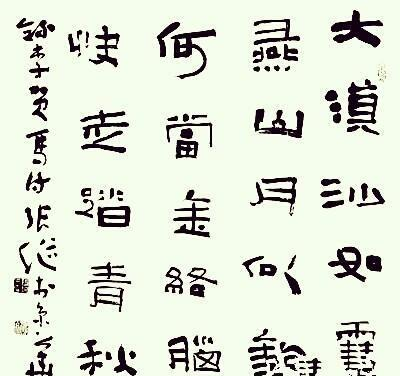 大漠沙如雪
燕山月似鉤
何當金絡腦
快走踏青秋
錄李賀馬詩張繼於京華